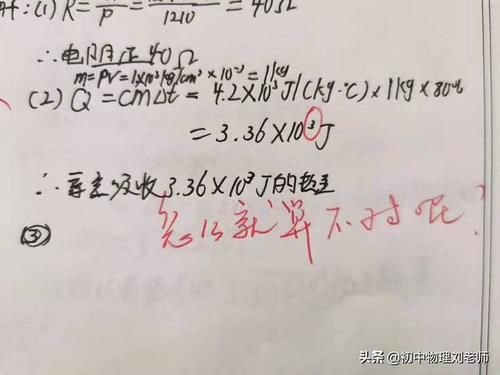 (1) R = = 1210 = 40Ω
∴电阻在40Ω
m=ρV=1×10³kg/cm³×10⁻³=1kg
(2) Q = cmΔt = 4.2×10³J/(kg·℃)×1kg×80℃
= 3.36×10³J
∴ 吸收3.36×10³J的热量
怎么就算不对呢?
③
头条 @初中物理刘老师